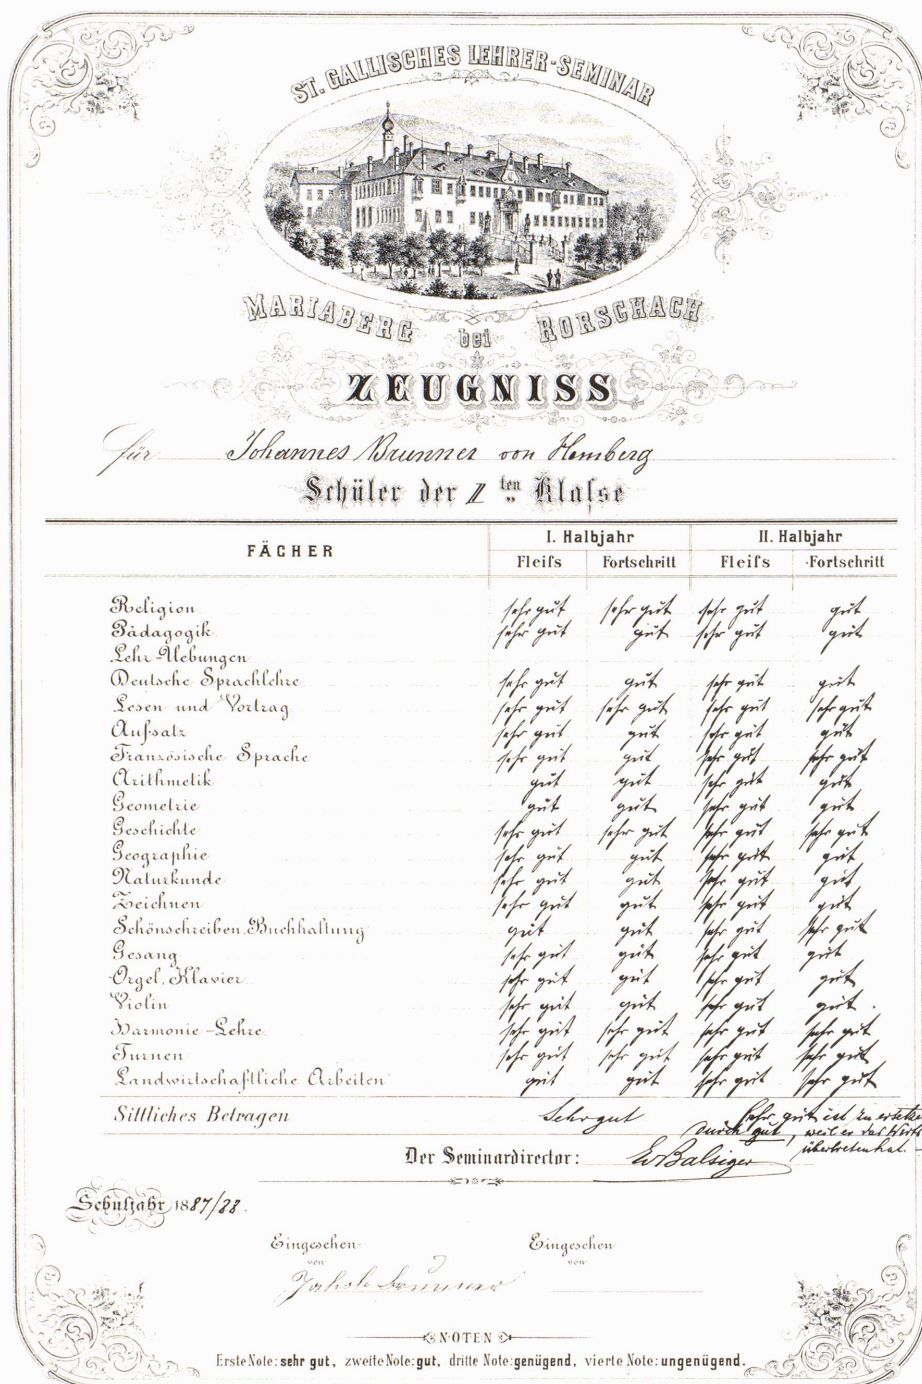 ST. GALLISCHES LEHRER-SEMINAR
MARIABERG bei RORSCHACH
ZEUGNISS
für Johannes Brunner von Hemberg
Schüler der II ten Klasse
FÄCHER I. Halbjahr II. Halbjahr
Fleiss Fortschritt Fleiss Fortschritt
Religion sehr gut sehr gut sehr gut gut
Pädagogik sehr gut gut sehr gut gut
Lehr-Uebungen
Deutsche Sprachlehre sehr gut gut sehr gut gut
Lesen und Vortrag sehr gut sehr gut sehr gut sehr gut
Aufsatz sehr gut gut sehr gut gut
Französische Sprache sehr gut gut sehr gut sehr gut
Arithmetik gut gut sehr gut gut
Geometrie gut gut sehr gut gut
Geschichte sehr gut sehr gut sehr gut sehr gut
Geographie sehr gut gut sehr gut gut
Naturkunde sehr gut gut sehr gut gut
Zeichnen sehr gut gut sehr gut gut
Schönschreiben, Buchhaltung gut gut sehr gut sehr gut
Gesang sehr gut gut sehr gut gut
Orgel, Klavier sehr gut gut sehr gut gut
Violin sehr gut gut sehr gut gut.
Harmonie-Lehre sehr gut sehr gut sehr gut sehr gut
Turnen sehr gut sehr gut sehr gut sehr gut
Landwirtschaftliche Arbeiten gut gut sehr gut sehr gut
Sittliches Betragen Sehr gut Sehr gut ist zu
durch gut, weil er das
übertreten hat.
Der Seminardirector: Balsiger
Schuljahr 1887/88.
Eingesehen Eingesehen
von von
Jakob Brunner
NOTEN
Erste Note: sehr gut, zweite Note: gut, dritte Note: genügend, vierte Note: ungenügend.